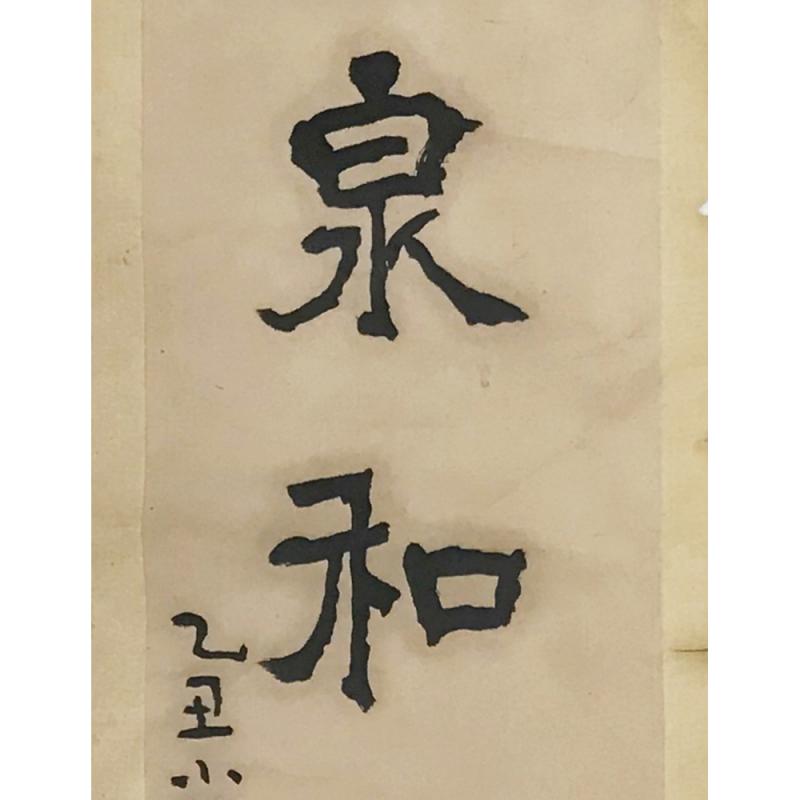 泉和
乙丑小